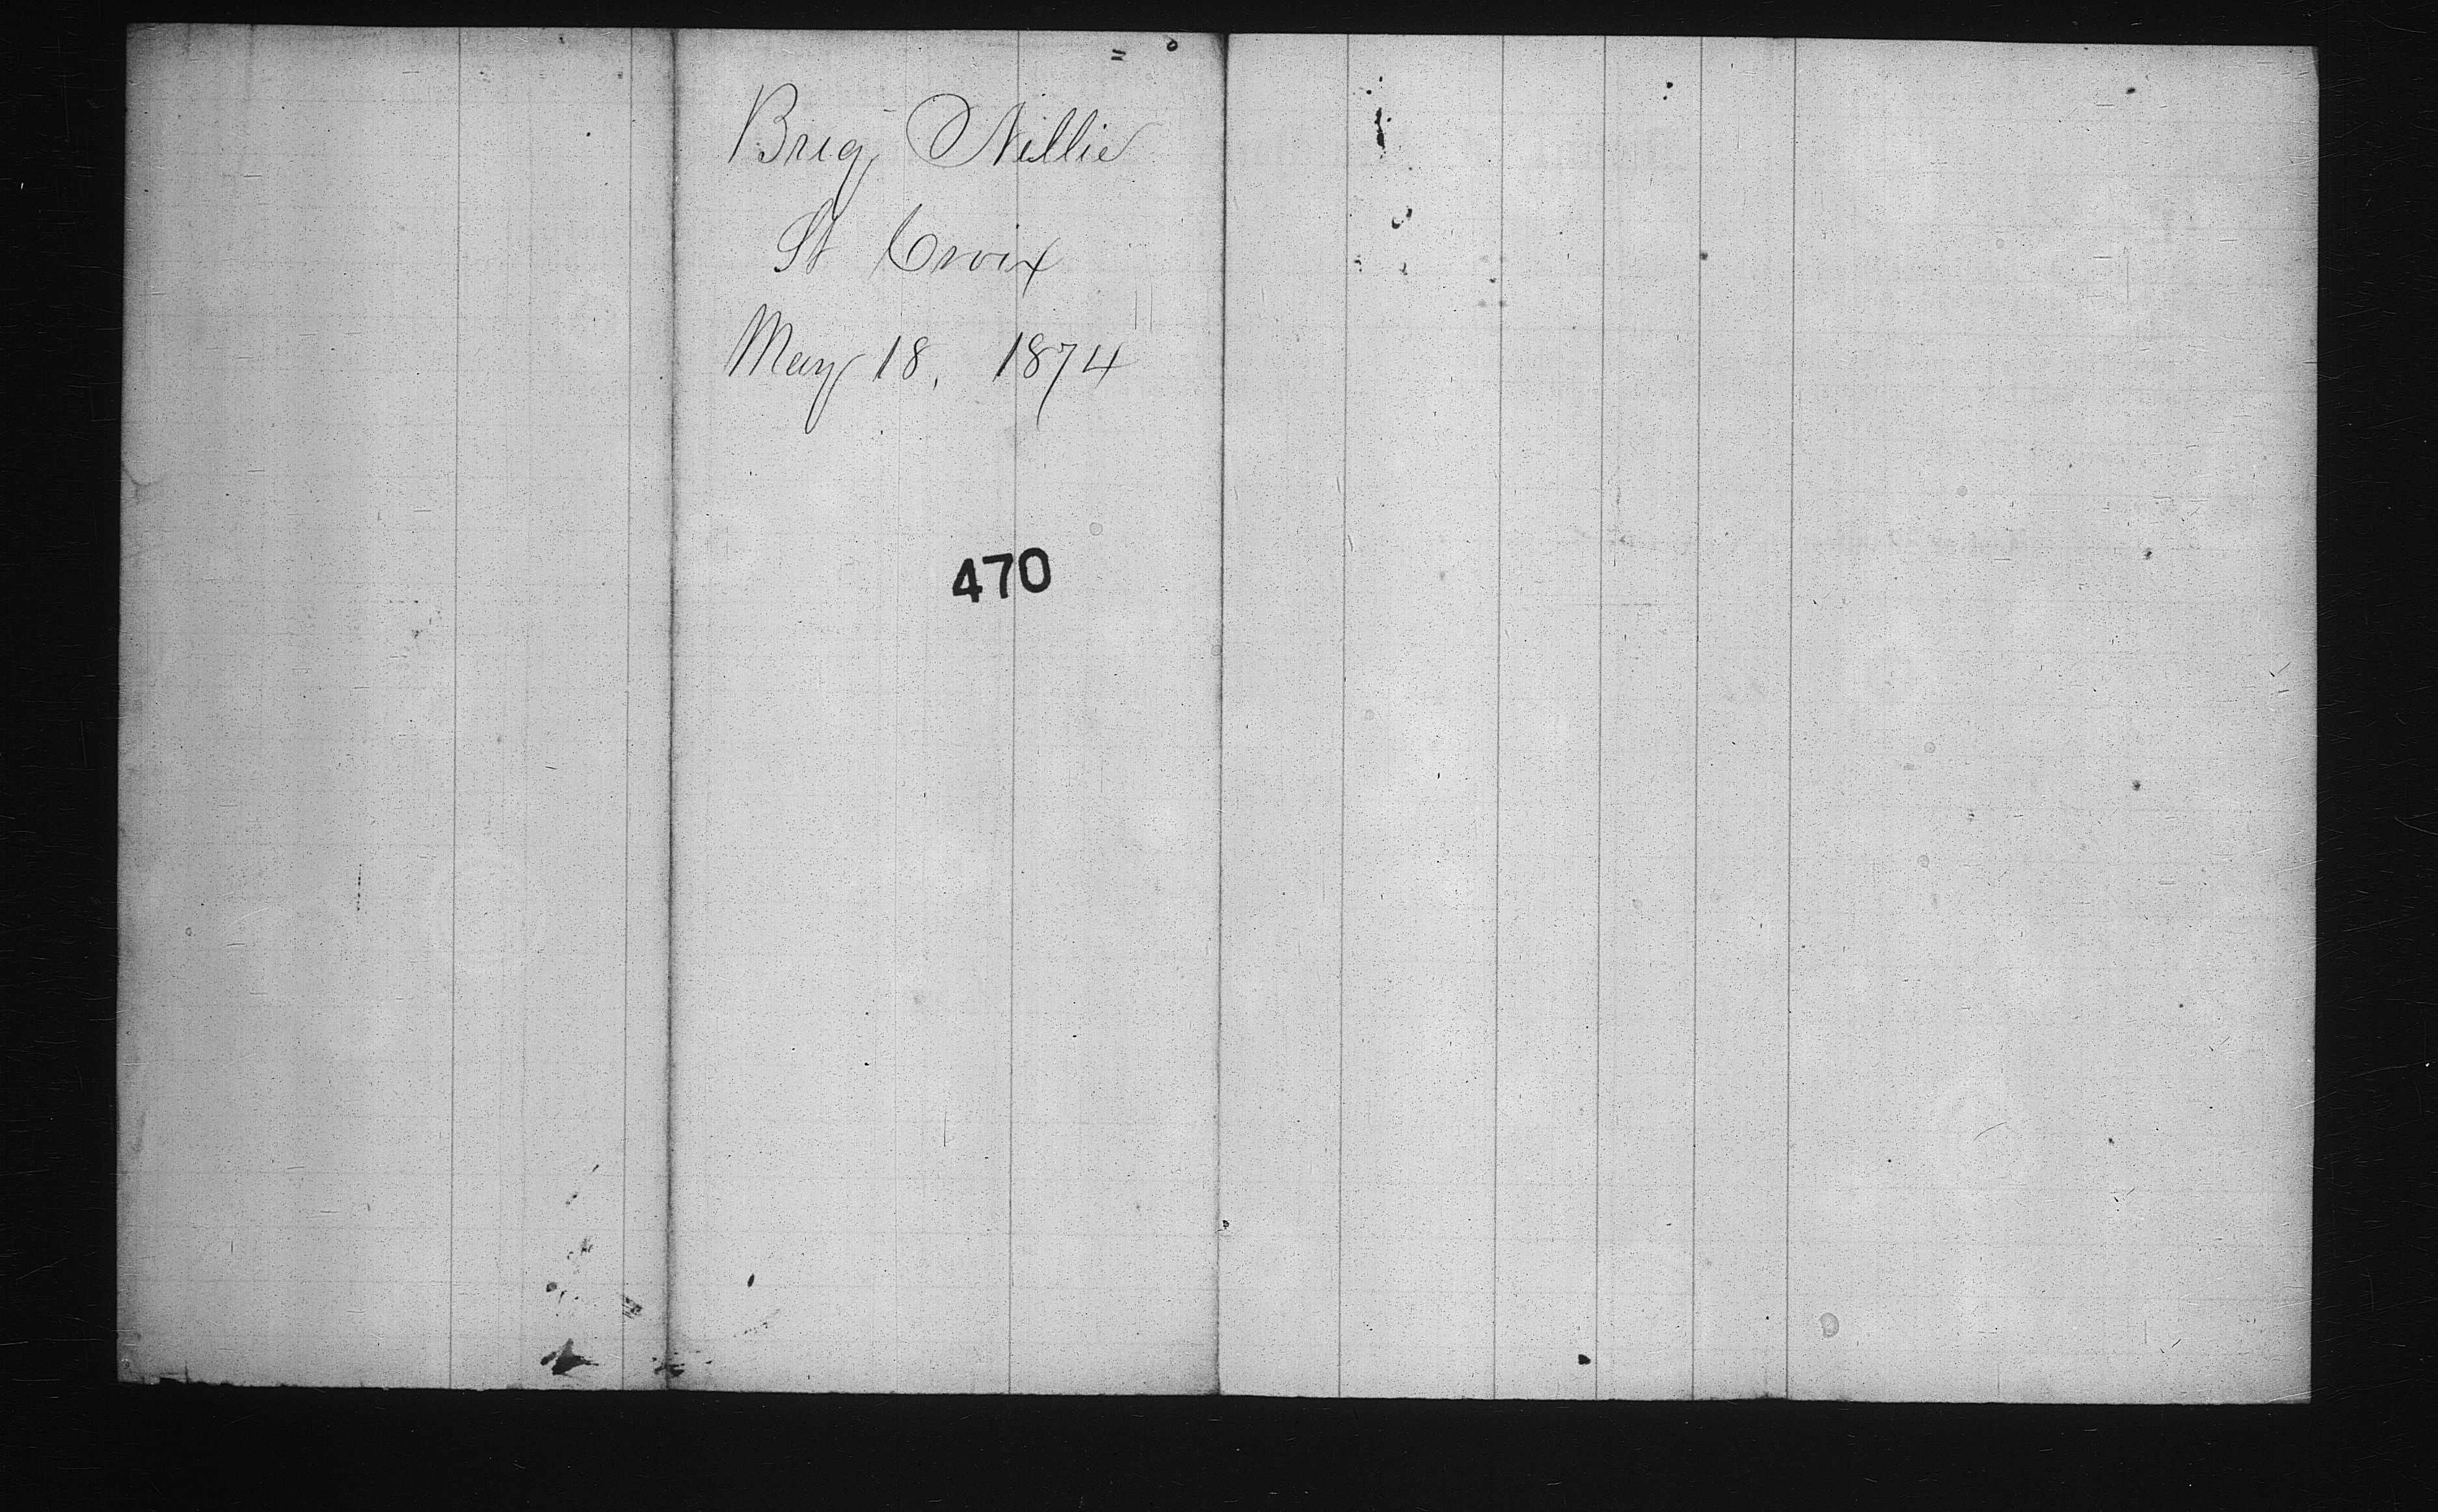 Brig Nellie
St Croix
May 18, 1874
470